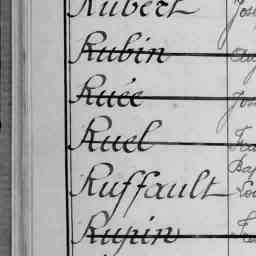 Rubert
Rubin
Ruée
Ruel
Ruffault
Rupin